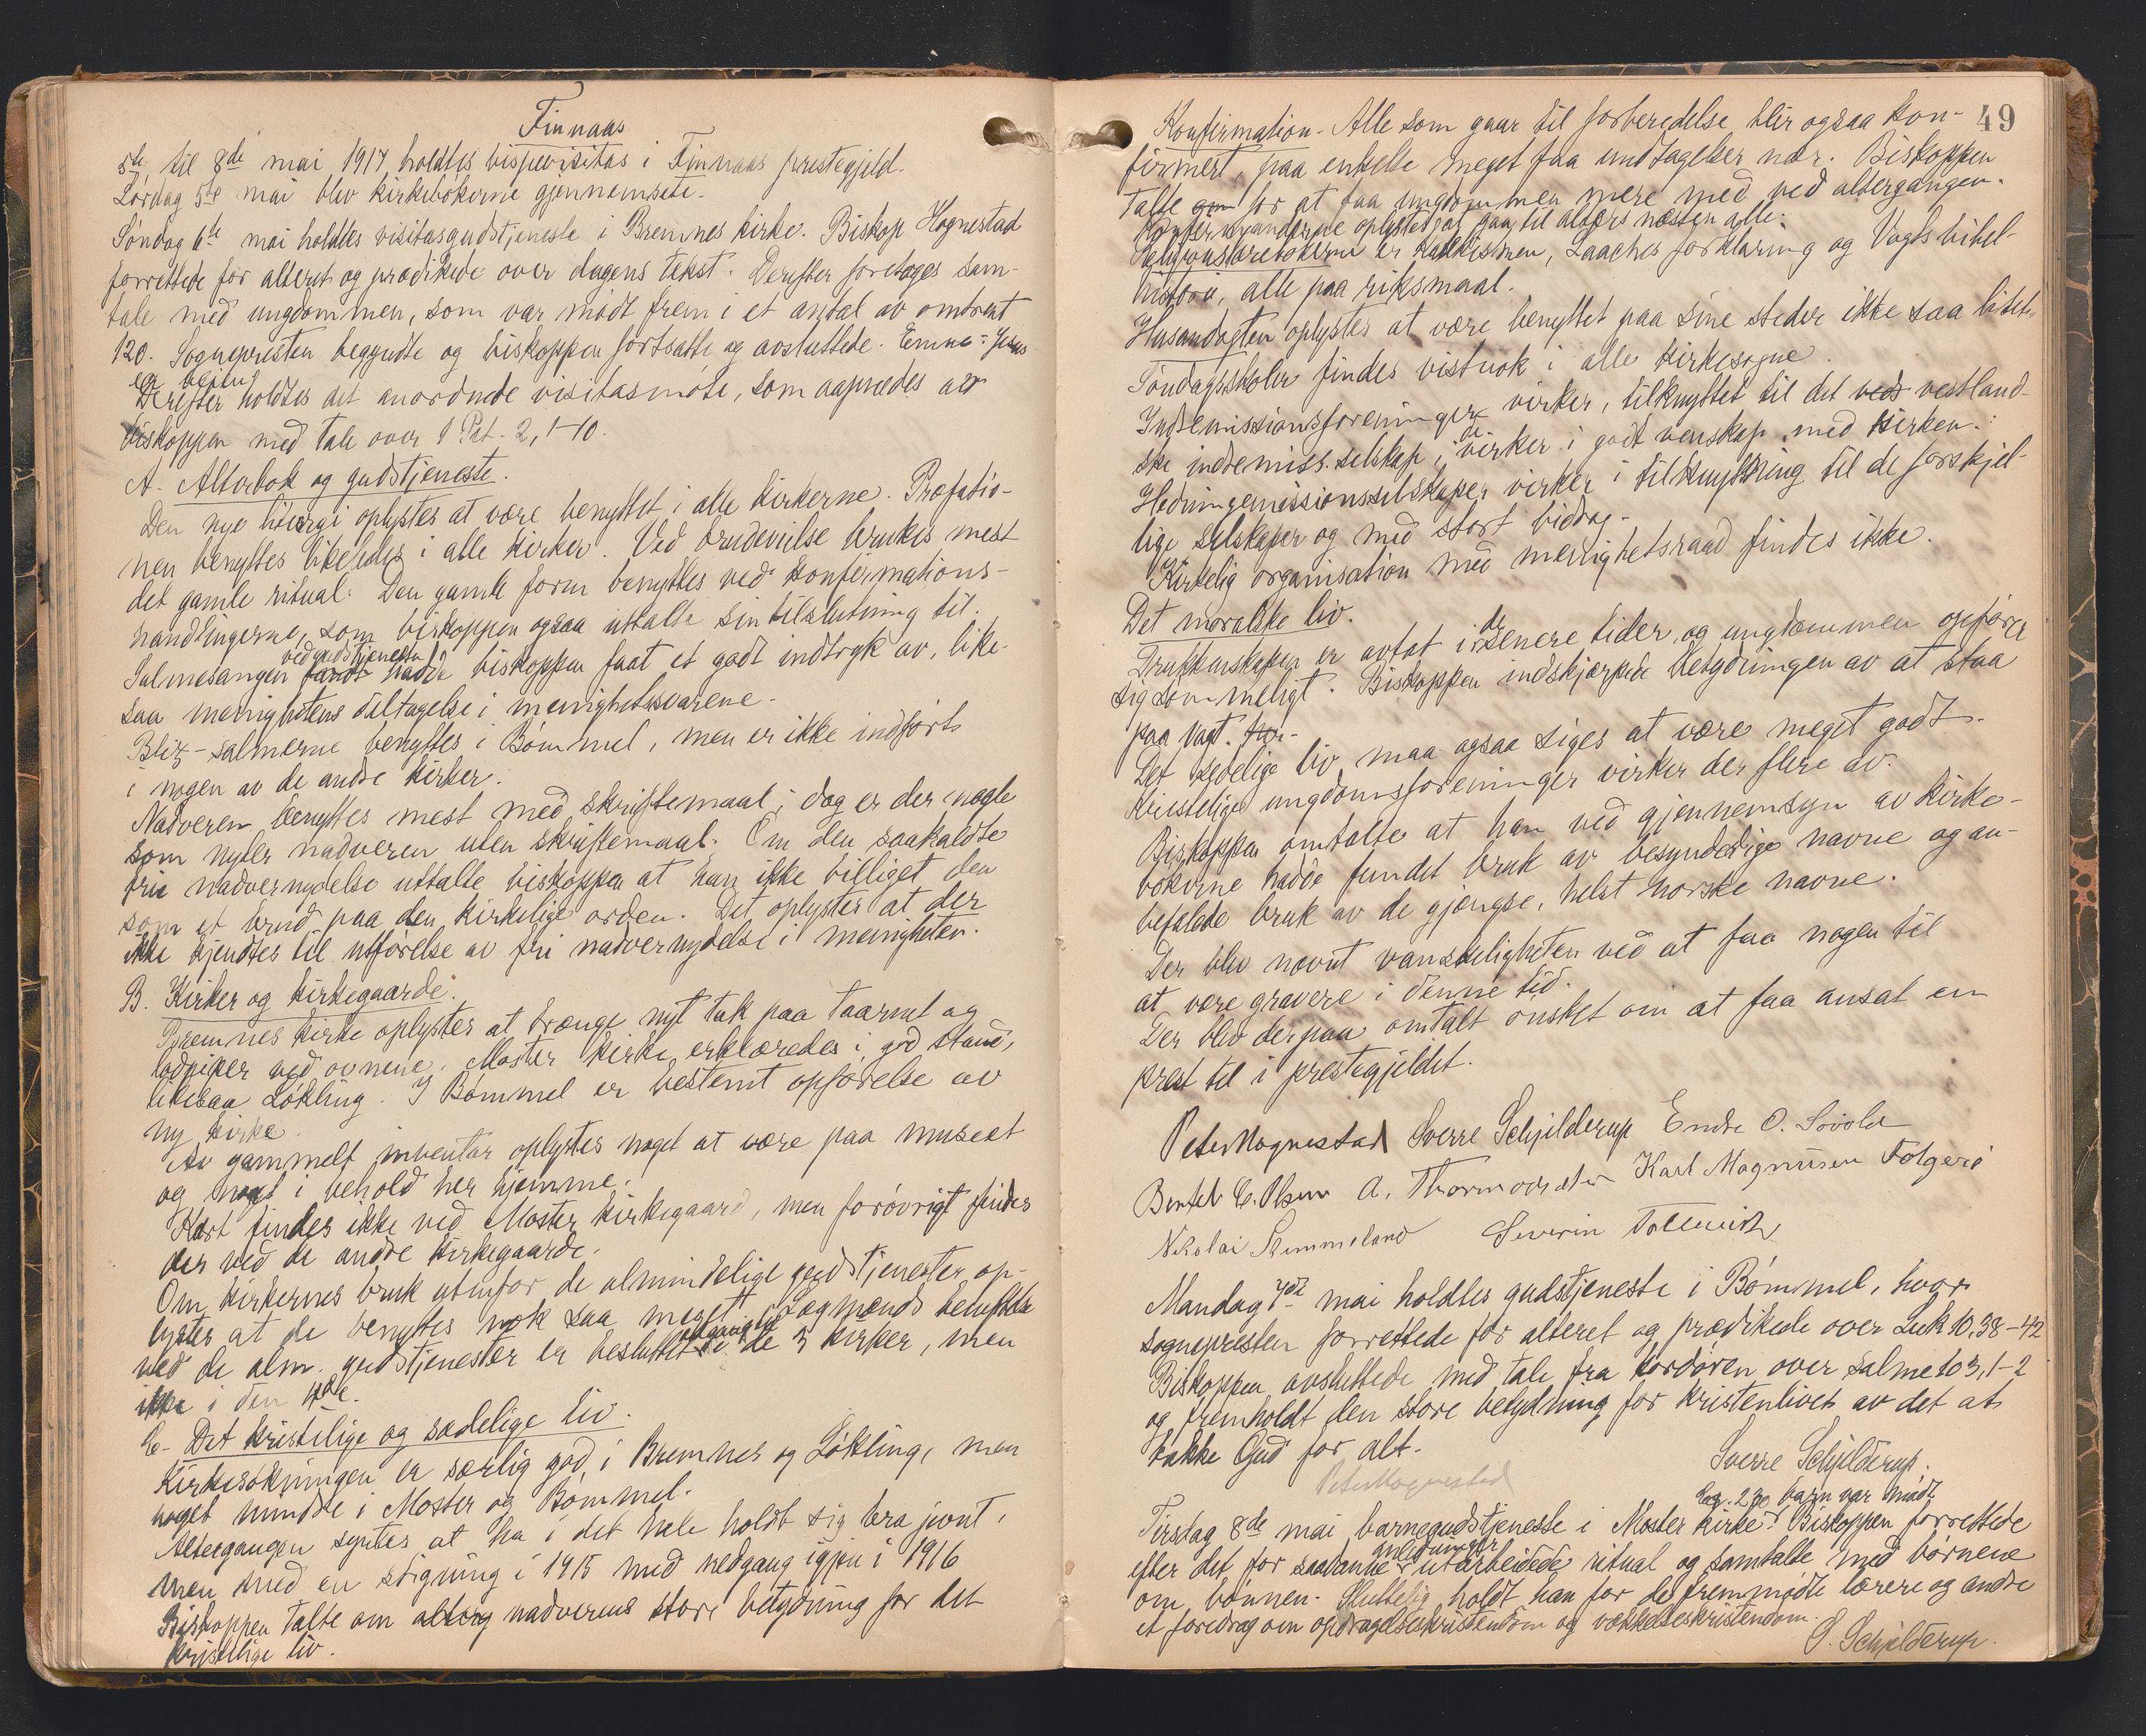 Finnaas
5te til 8de mai 1917 holdtes bispevisitas i Finnaas prestegjeld.
Lørdag 5te mai blev kirkebøkerne gjennemsete.
Søndag 6te mai holdtes visitasgudstjeneste i Bremnes kirke. Biskop Hognestad
forrettede for alteret og prædikede over dagens tekst. Derefter foretoges sam-
tale med ungdommen, som var mødt frem i et antal av omtrent
120. Sognepresten begyndte og biskoppen fortsatte og avsluttede. Emne: Jesus
er veien
Derefter holdtes det anordnede visitasmøte, som aapnedes av
biskoppen med tale over 1 Pet. 2, 1-10.
A. Alterbok og gudstjeneste.
Den nye liturgi oplystes at være benyttet i alle kirkerne. Præfatio-
nen benyttes likeledes i alle kirker. Ved brudevielse brukes mest
det gamle ritual. Den gamle form benyttes ved konfirmations-
handlingerne, som biskoppen ogsaa uttalte sin tilslutning til.
Salmesangen ved gudstjenesten hadde biskoppen faat et godt indtryk av, like-
saa menighetens deltagelse i menighetssvarene.
Blix-salmerne benyttes i Bømmel, men er ikke indført
i nogen av de andre kirker.
Nadveren benyttes mest med skriftemaal; dog er der nogle
som nyter nadveren uten skriftemaal. Om den saakaldte
frie nadvernydelse uttalte biskoppen at han ikke billiget den
som et brud paa den kirkelige orden. Det oplystes at der
ikke kjendtes til utførelse av fri nadvernydelse i menigheten.
B. Kirker og kirkegaarde.
Bremnes kirke oplystes at trænge nyt tak paa taarnet og
lodpiper ved ovnene. Moster kirke erklæredes i god stand,
likesaa Løkling. I Bømmel er bestemt opførelse av
ny kirke.
Av gammelt inventar oplystes noget at være paa museet
og noget i behold her hjemme.
Kart findes ikke ved Moster kirkegaard, men forøvrigt findes
der ved de andre kirkegaarde.
Om kirkernes bruk utenfor de almindelige gudstjenester op-
lystes at de benyttes nok saa meget. Lægmænds benyttelse
ved de alm. gudstjenester er besluttet adgang til i de 3 kirker, men
ikke i den 4de.
C. Det kristelige og sædelige liv.
Kirkesøkningen er særlig god i Bremnes og Løkling, men
noget mindre i Moster og Bømmel.
Altergangen syntes at ha i det hele holdt sig bra jevnt,
men med en stigning i 1915 med nedgang igjen i 1916
Biskoppen talte om nadverens store betydning for det
kristelige liv.
49
Konfirmation. Alle som gaar til forberedelse blir ogsaa kon-
firmert, paa enkelte meget faa undtagelser nær. Biskoppen
talte om for at faa ungdommen mere med ved altergangen.
Konfirmanderne oplystes at gaa til alters næsten alle.
Religionslærebøkerne er katekismen, Laaches forklaring og Vogts bibel-
historie, alle paa riksmaal.
Husandagten oplystes at være benyttet paa sine steder ikke saa litet.
Søndagsskoler findes vistnok i alle kirkesogne.
Indremissionsforeninger virker, tilknyttet til det veds vestland-
ske indremiss. selskap; de virker i godt venskap med kirken.
Hedningemissionsselskaper virker i tilknytning til de forskjel-
lige selskaper og med stort bidrag.
Kirkelig organisation med menighetsraad findes ikke.
Det moralske liv.
Drukkenskapen er avtat i de senere tider, og ungdommen opfører
sig sømmeligt. Biskoppen indskjærpede betydningen av at staa
paa vagt.
Det sædelige liv maa ogsaa siges at være meget godt.
Kristelige ungdomsforeninger virker der flere av.
Biskoppen omtalte at han ved gjennemsyn av kirke-
bøkerne hadde fundet bruk av besynderlige navne og an-
befalede bruk av de gjængse, helst norske navne.
Der blev nævnt vanskeligheten ved at faa nogen til
at være gravere i denne tid.
Der blev derpaa omtalt ønsket om at faa ansat en
prest til i prestegjeldet.
Peter Hognestad Sverre Schjelderup Endre O. Løvold
Bertel C. Olsen A. Thormodsæter Karl Magnusen Folgerø
Nikolai Skimmeland Severin Tollevik
Mandag 7de mai holdtes gudstjeneste i Bømmel, hvor
sognepresten forrettede for alteret og prædikede over Luk 10, 38-42
Biskoppen avsluttede med tale fra kordøren over salme 103, 1-2
og fremholdt den store betydning for kristenlivet av det at
takke Gud for alt.
Sverre Schjelderup.
Peter Hognestad
Tirsdag 8de mai barnegudstjeneste i Moster kirke. Ca. 230 barn var mødt. Biskoppen forrettede
efter det for saadanne anledninger utarbeidede ritual og samtalte med børnene
om bønnen. Sluttelig holdt han for de fremmødte lærere og andre
et foredrag om opdragelseskristendom og vækkelseskristendom.
S. Schjelderup.